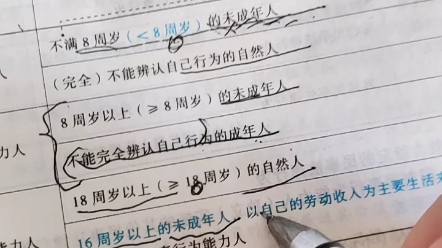 不满8周岁(<8周岁)的未成年人
(完全)不能辨认自己行为的自然人
8周岁以上(≥8周岁)的未成年人
不能完全辨认自己行为的成年人
力人
18周岁以上(≥18周岁)的自然人
16周岁以上的未成年人,以自己的劳动收入为主要生活
为能力人